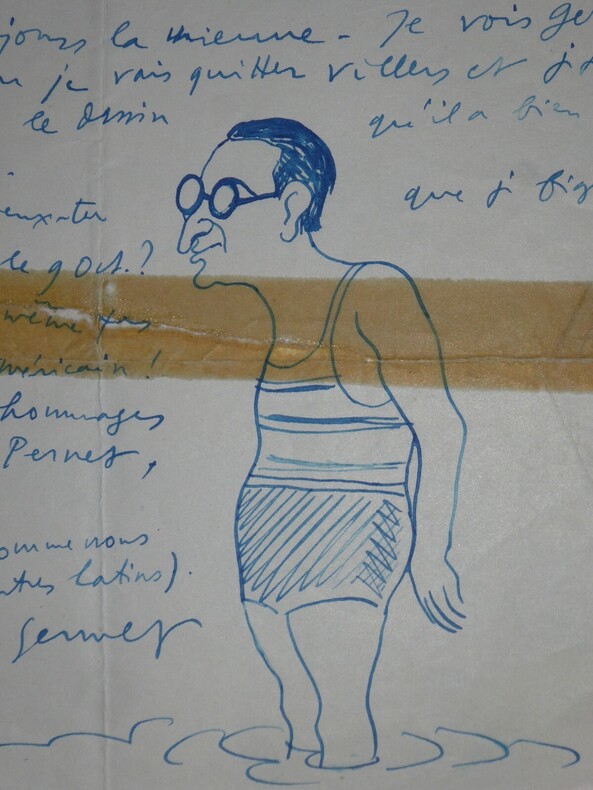 jours la mienne - Je vois Ge
je vais quitter Villers et
le dessin qu'il a bien
que je
le goct.?
même pas
méricain !
hommages
Pernet,
omme nous
utres latins).